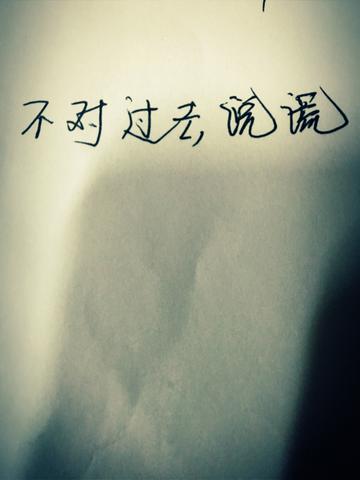 不对过去,说谎